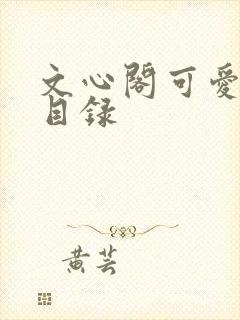 文心閣可愛
目錄
黃芸